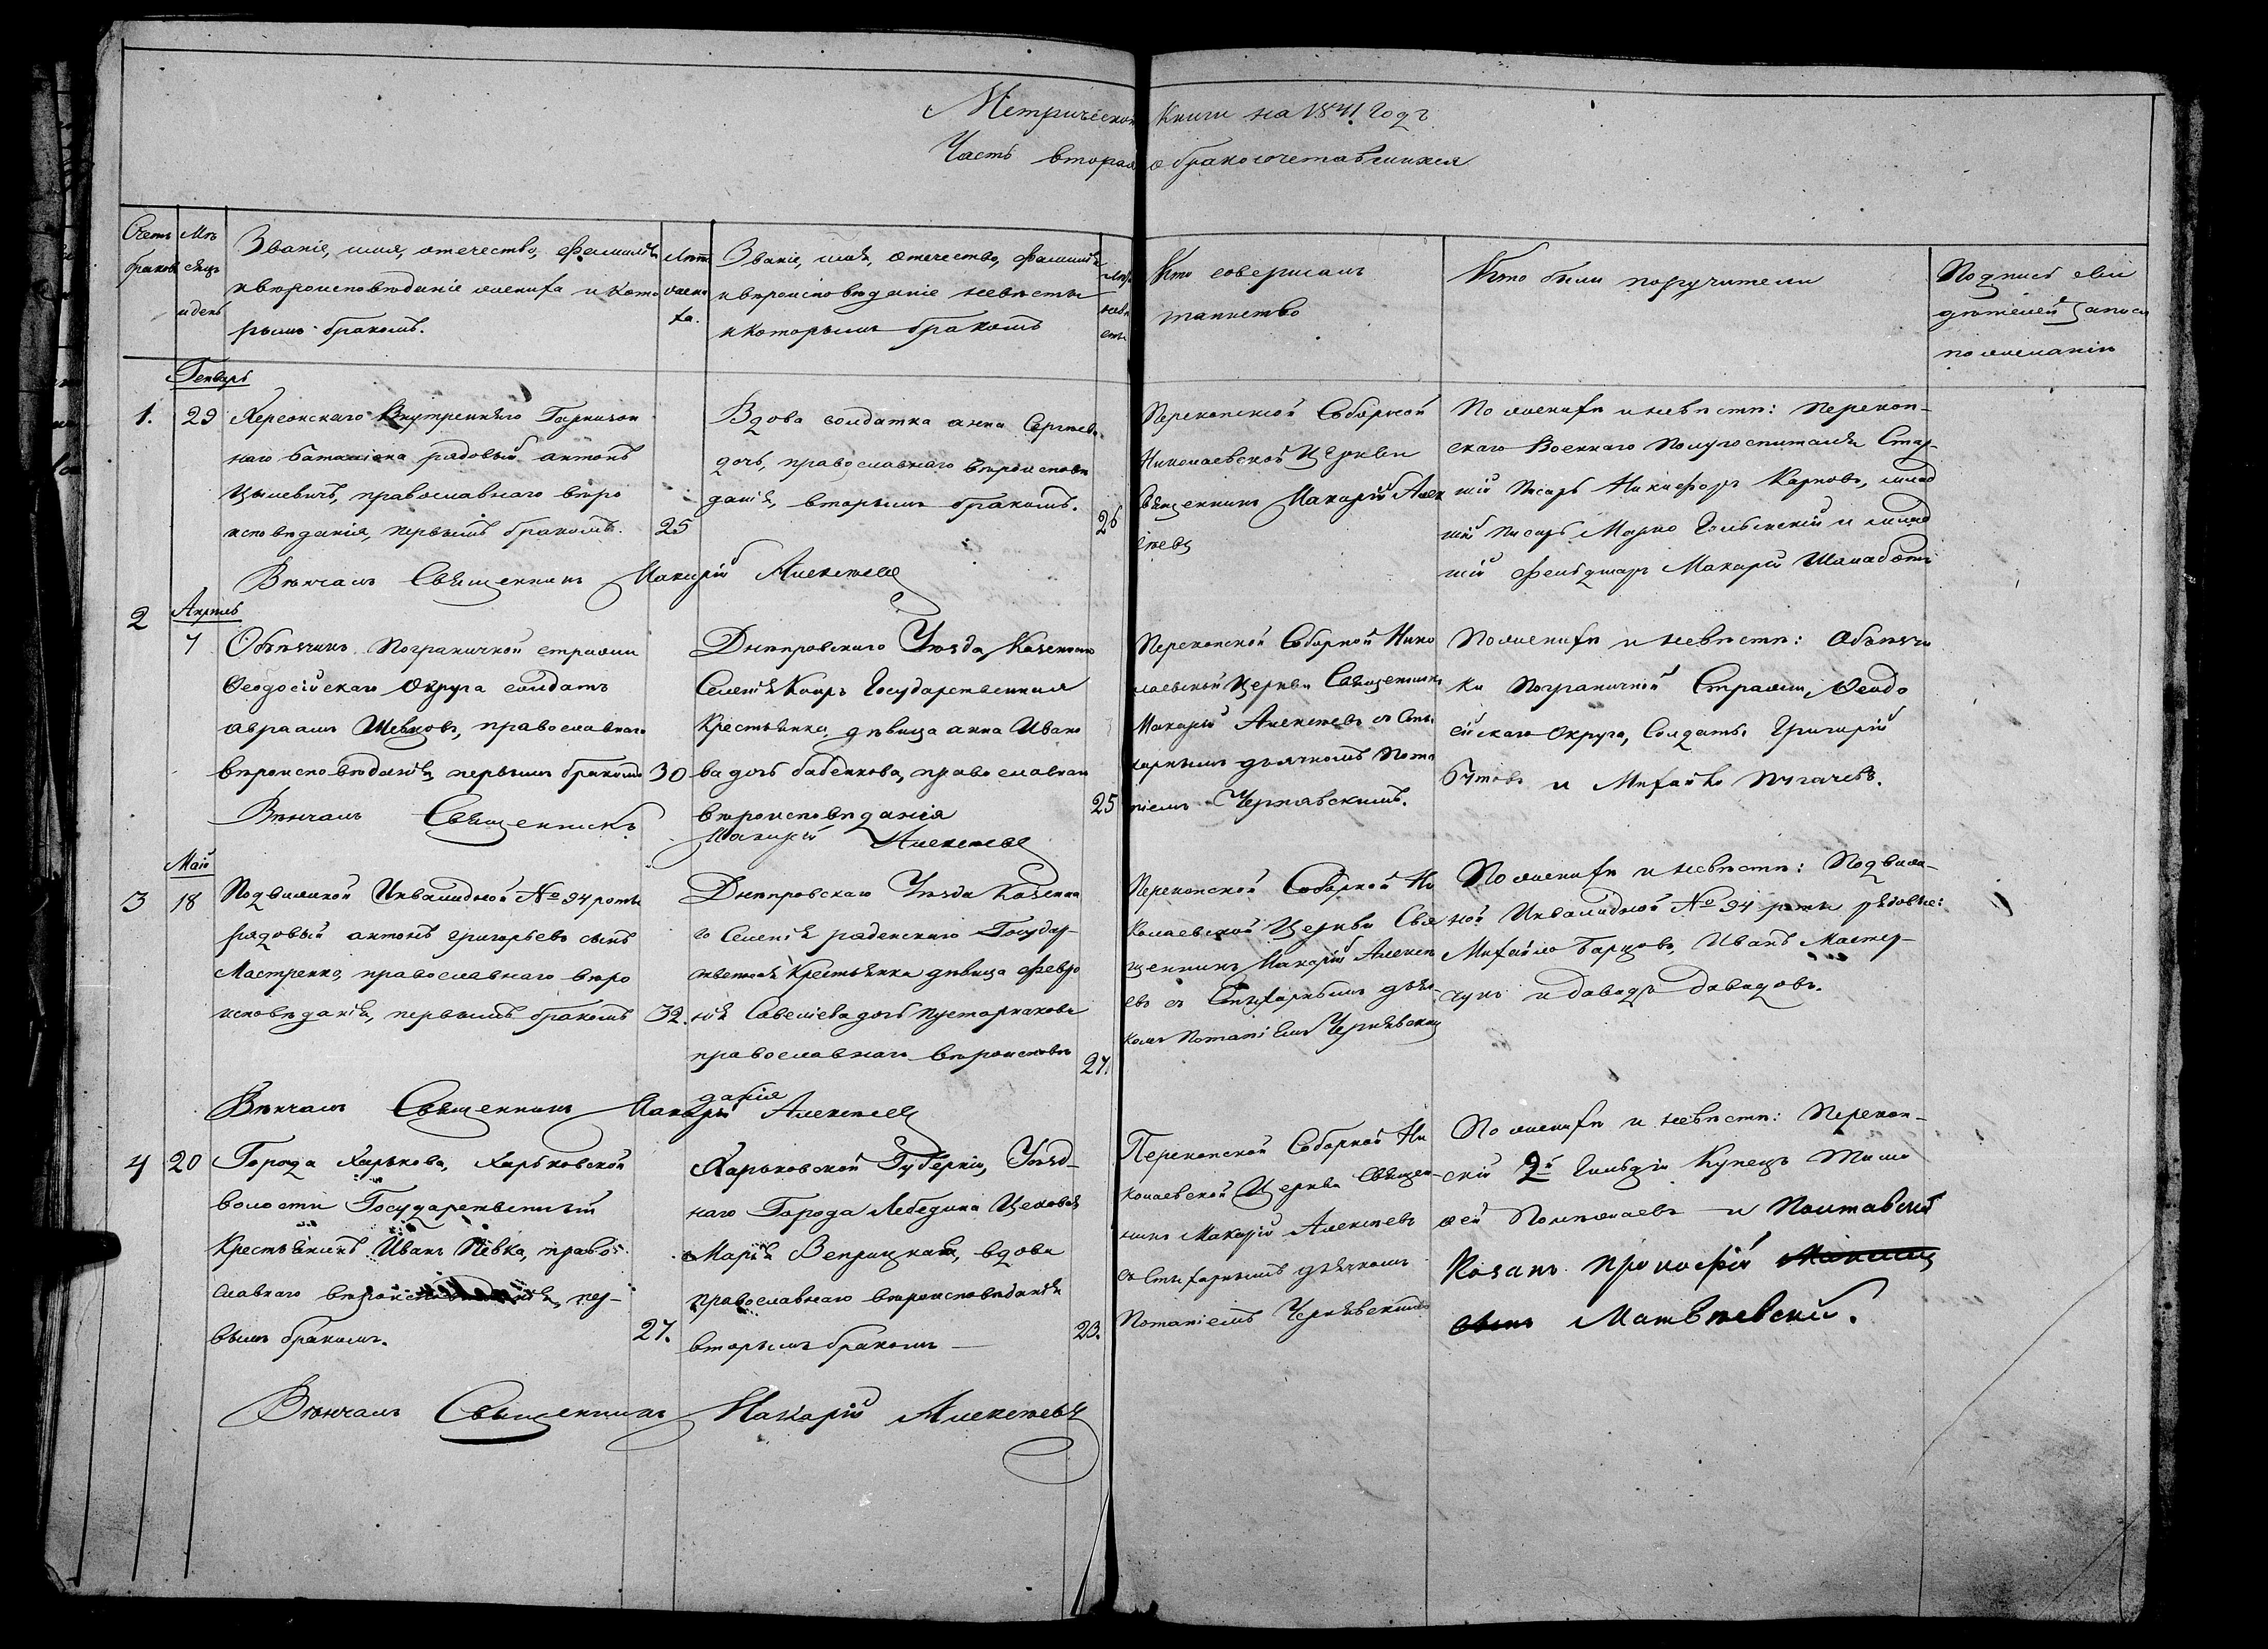 Метрической Книги на 1841 Годъ
Часть вторая о бракосочетавшихся
Счетъ браковъ
Мѣсяцъ и день
Званіе, имя, отечество, фамилія
и вѣроисповѣданіе жениха и кото
рымъ бракомъ.
Лѣта жени
ха.
Званіе, имя, отечество, фамилія
и вѣроисповѣданіе невѣсты
и которымъ бракомъ
Лѣта
невѣ
сты
Кто совершалъ
таинство
Кто были поручители
Подписъ сви
дѣтелей записи
по желанію
Генварь
1.
29
Херсонскаго Внутренняго Гарнизон
наго баталіона рядовый антонъ
Цылевичъ, православнаго вѣро
исповѣданія, первымъ бракомъ.
25
Вдова солдатка анна Сергѣева
дочь, православнаго вѣроисповѣ
данія, вторымъ бракомъ.
26
Перекопской Соборной
Николаевской Церкви
Священникъ Макарій Алек
сѣевъ
По женихѣ и невѣстѣ: Перекоп-
скаго Военнаго Полугоспиталя Стар-
шій Писарь Никифоръ Карповъ, млад
шій Писарь Марко и млад
шій фельдшаръ Макарій
Вѣнчалъ Священникъ Макарій Алексѣевъ
2
Апрѣль
7
Объѣзчикъ Пограничной стражи
Ѳеодосійскаго Округа солдатъ
авраамъ Шевцовъ, православнаго
вѣроисповѣданія, первымъ бракомъ
30
Днѣпровскаго Уѣзда Казеннаго
Селенія Каиръ Государственная
Крестьянка, дѣвица анна Ивано
ва дочь бабенкова, православнаго
вѣроисповѣданія
25
Перекопской Соборной Нико
лаевской Церкви Священникъ
Макарій Алексѣевъ съ Сти
харнымъ дьячкомъ Пота
піемъ Чернявскимъ.
По женихѣ и невѣстѣ: Объѣзчи
ки Пограничной Стражи, Ѳеодо
сійскаго Округа, Солдаты Григорій
Бутовъ и Михайло Пугачевъ.
Вѣнчалъ Священникъ Макарій Алексѣевъ
Маій
3
18
Подвижной Инвалидной № 94 роты
рядовый антонъ григорьевъ сынъ
Мастренко, православнаго вѣро
исповѣданія, первымъ бракомъ
32.
Днѣпровскаго Уѣзда Казенна
го Селенія раденскаго Государ-
ственная Крестьянка дѣвица февро
нія Савеліева дочь
православнаго вѣроисповѣ
данія
27.
Перекопской Соборной Ни
колаевской Церкви Свя
щенникъ Макарій Алексѣ
евъ съ Стихарнымъ дьяч
комъ Потапіемъ Чернявским
По женихѣ и невѣстѣ: Подвиж-
ной Инвалидной № 94 роты рядовые:
Михайло Барцовъ, Иванъ Мастер-
чукъ и давидъ давидовъ.
Вѣнчалъ Священникъ Макарій Алексѣевъ
4
20
Города Харькова, Харьковской
волости Государственный
Крестьянинъ Иванъ Пѣвка, право
славнаго вѣроисповѣданія, пер-
вымъ бракомъ.
27.
Харьковской Губерніи, Уѣзд-
наго Города Лебедина Цеховая
Марія Веприцкая, вдова
православнаго вѣроисповѣданія
вторымъ бракомъ —
23.
Перекопской Соборной Ни
колаевской Церкви Священ-
никъ Макарій Алексѣевъ
съ Стихарнымъ дьячкомъ
Потапіемъ Чернявскимъ
По женихѣ и невѣстѣ: Перекоп-
скій 2й Гильдіи Купецъ Тимо
ѳей и Полтавскій
Козакъ Прокофій
сынъ Матвѣевскій.
Вѣнчалъ Священникъ Макарій Алексѣевъ